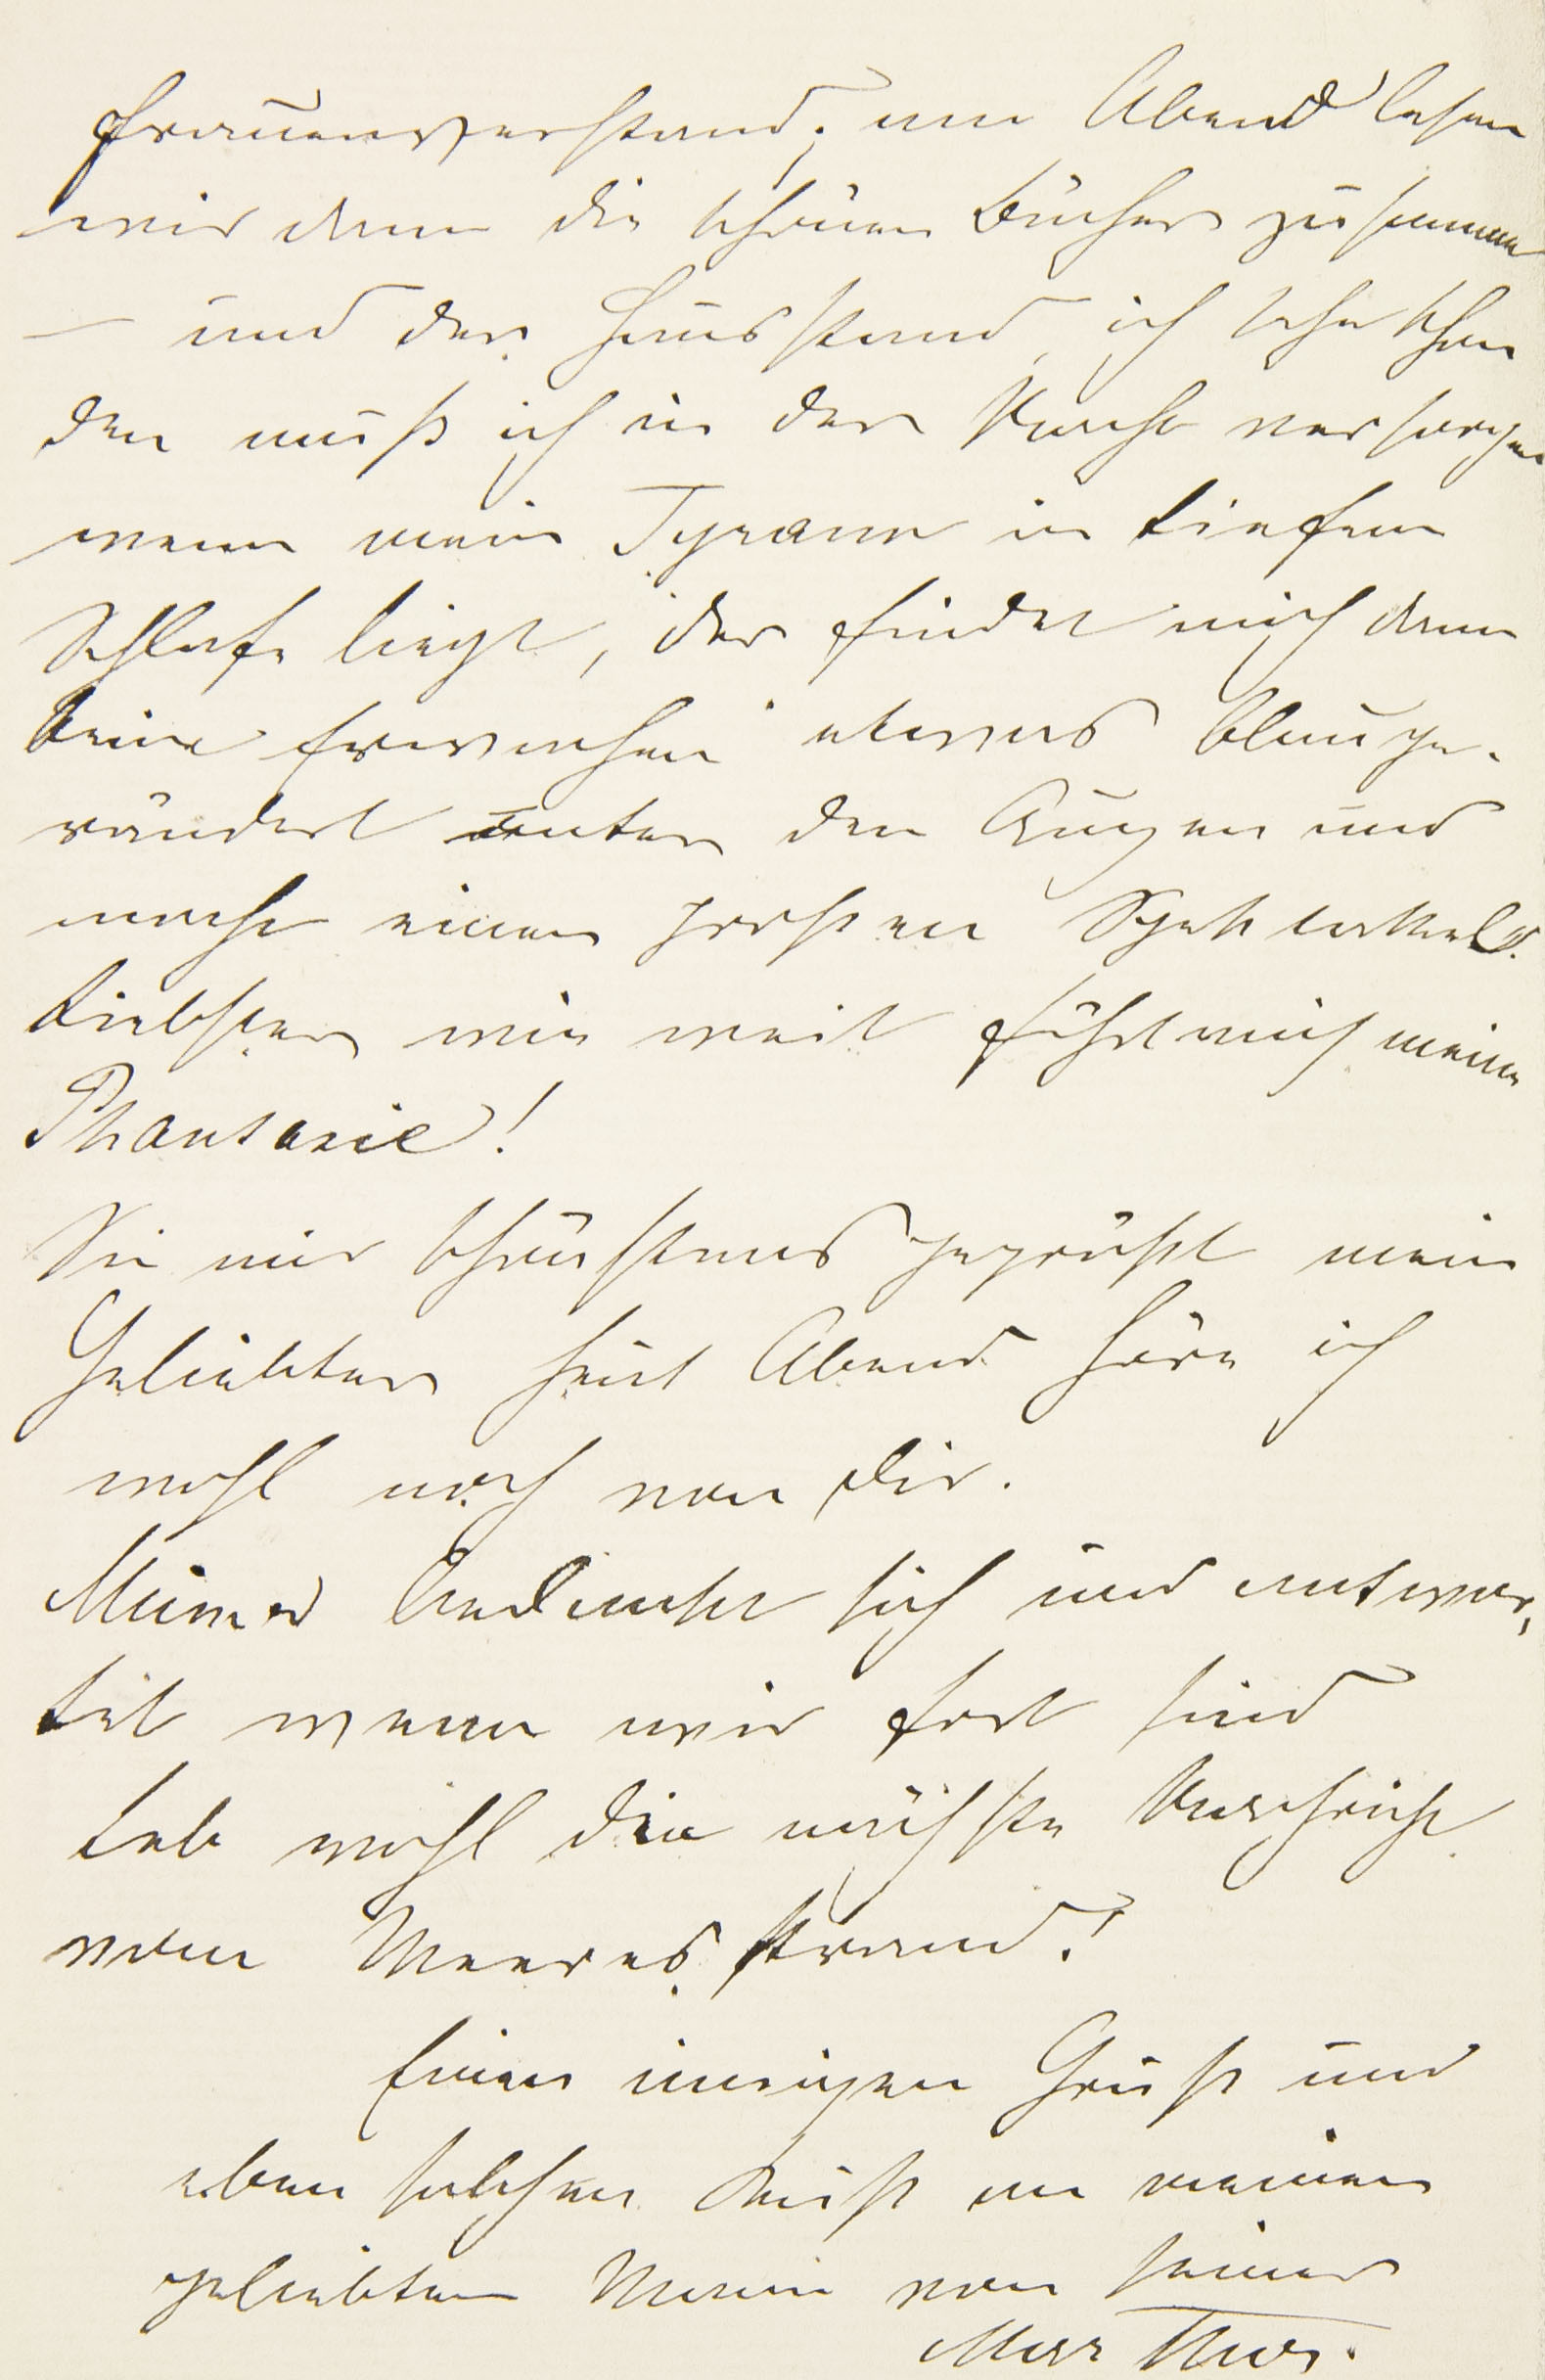 Frauenverstand; am Abend lesen
wir dann die schönen Bücher zusammen
— und der Hausstand, ich sehe schon
den muß ich in der Nacht versorgen
wenn mein Tyrann in tiefem
Schlafe liegt, der findet mich dann
beim Erwachen etwas blauge-
rändert unter den Augen und
macht einen großen Spektakel.
Liebster wie weit führt mich meine
Phantasie!
Sei mir schönstens gegrüßt mein
Geliebter heut Abend höre ich
wohl noch von Dir.
Mama bedankt sich und antwor-
tet wenn wir fort sind
Leb wohl die nächste Nachricht
vom Meeresstrand!
Einen innigen Gruß und
eben solchen Kuß an meinen
geliebten Mann von seiner